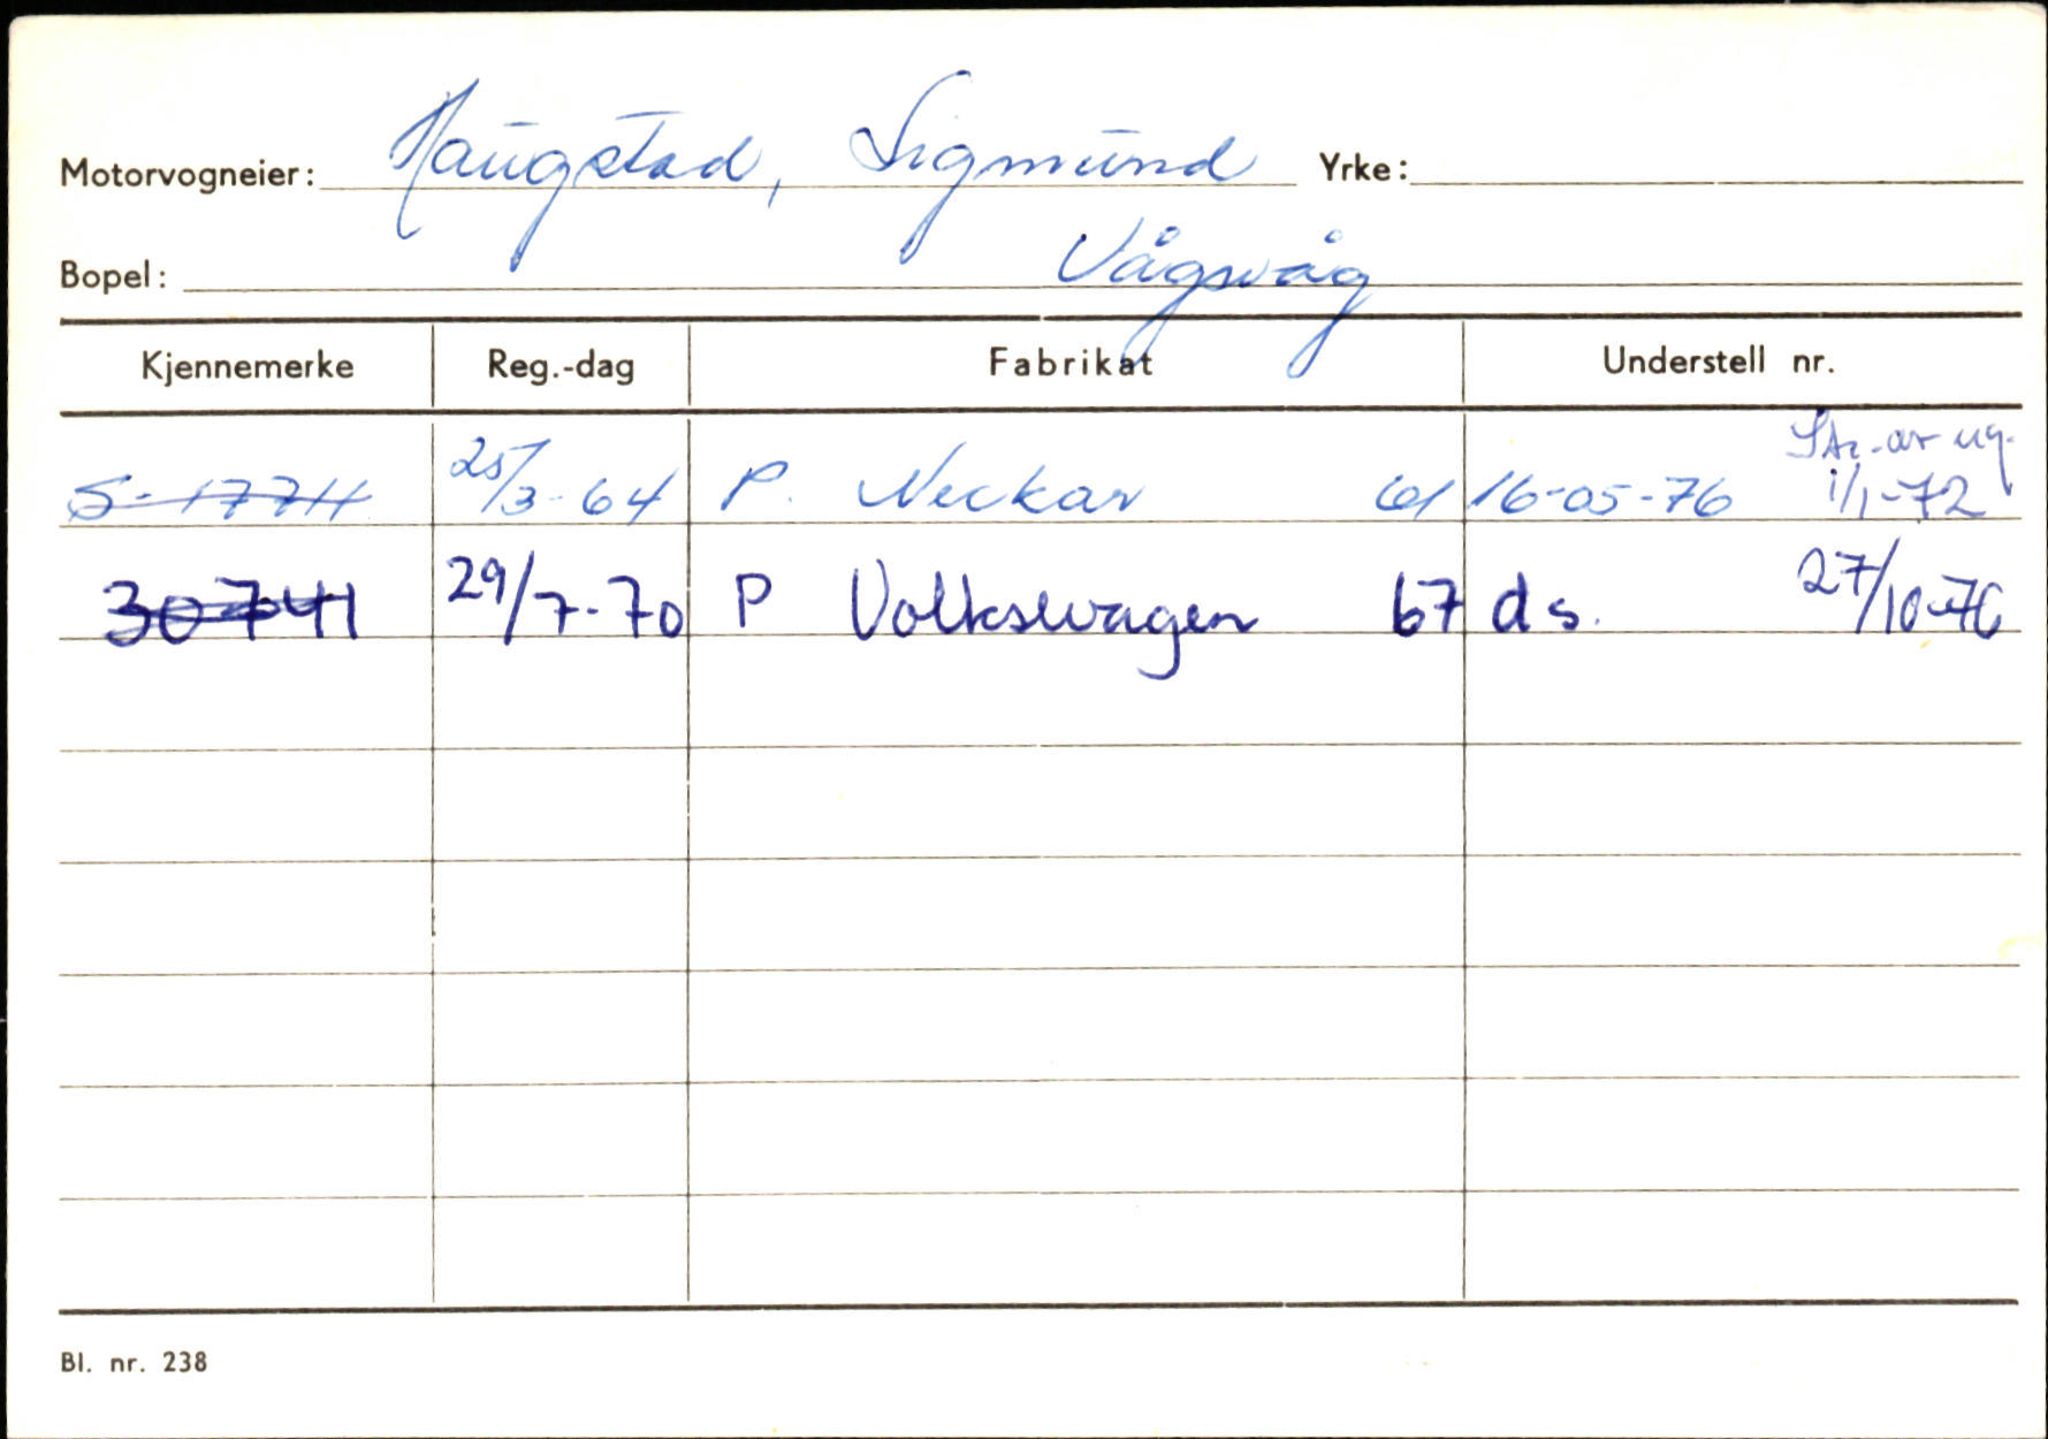 Motorvogneier: Haugstad, Sigmund Yrke:
Bopel: Vågsvåg
Kjennemerke Reg.-dag Fabrikat Understell nr.
Str. av reg.
25/3-64 P. Neckar 61 16-05-76 1/1-72
30741 29/7-70 P Volkswagen 67 ds. 27/10-76
Bl. nr. 238